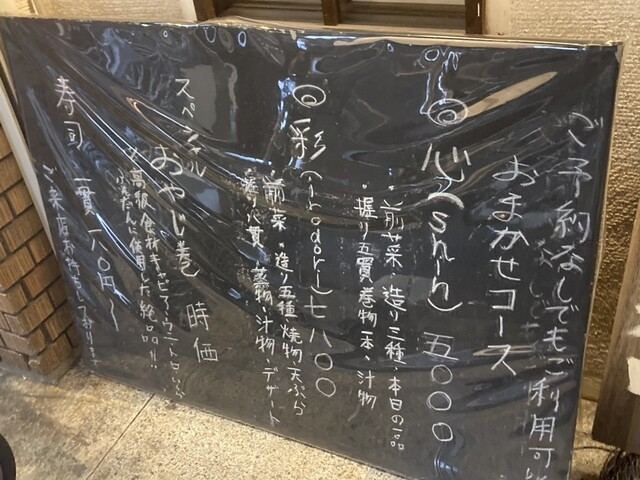 ご予約なしでもご利用可
おまかせコース
◎心(shin) 五000
・前菜・造り三種・本日の一品
・握り五貫・巻物一本・汁物
◎彩(irodori) 七八00
・前菜・造り五種・焼物・天ぷら
・握り八貫・巻物・汁物・デザート
スペシャル
おやじ巻 時価
高級食材キャビア・ウニ・トロ・いくら
ふんだんに使用した絶品!!
寿司 一貫 一八0円〜
ご来店お待ちしております